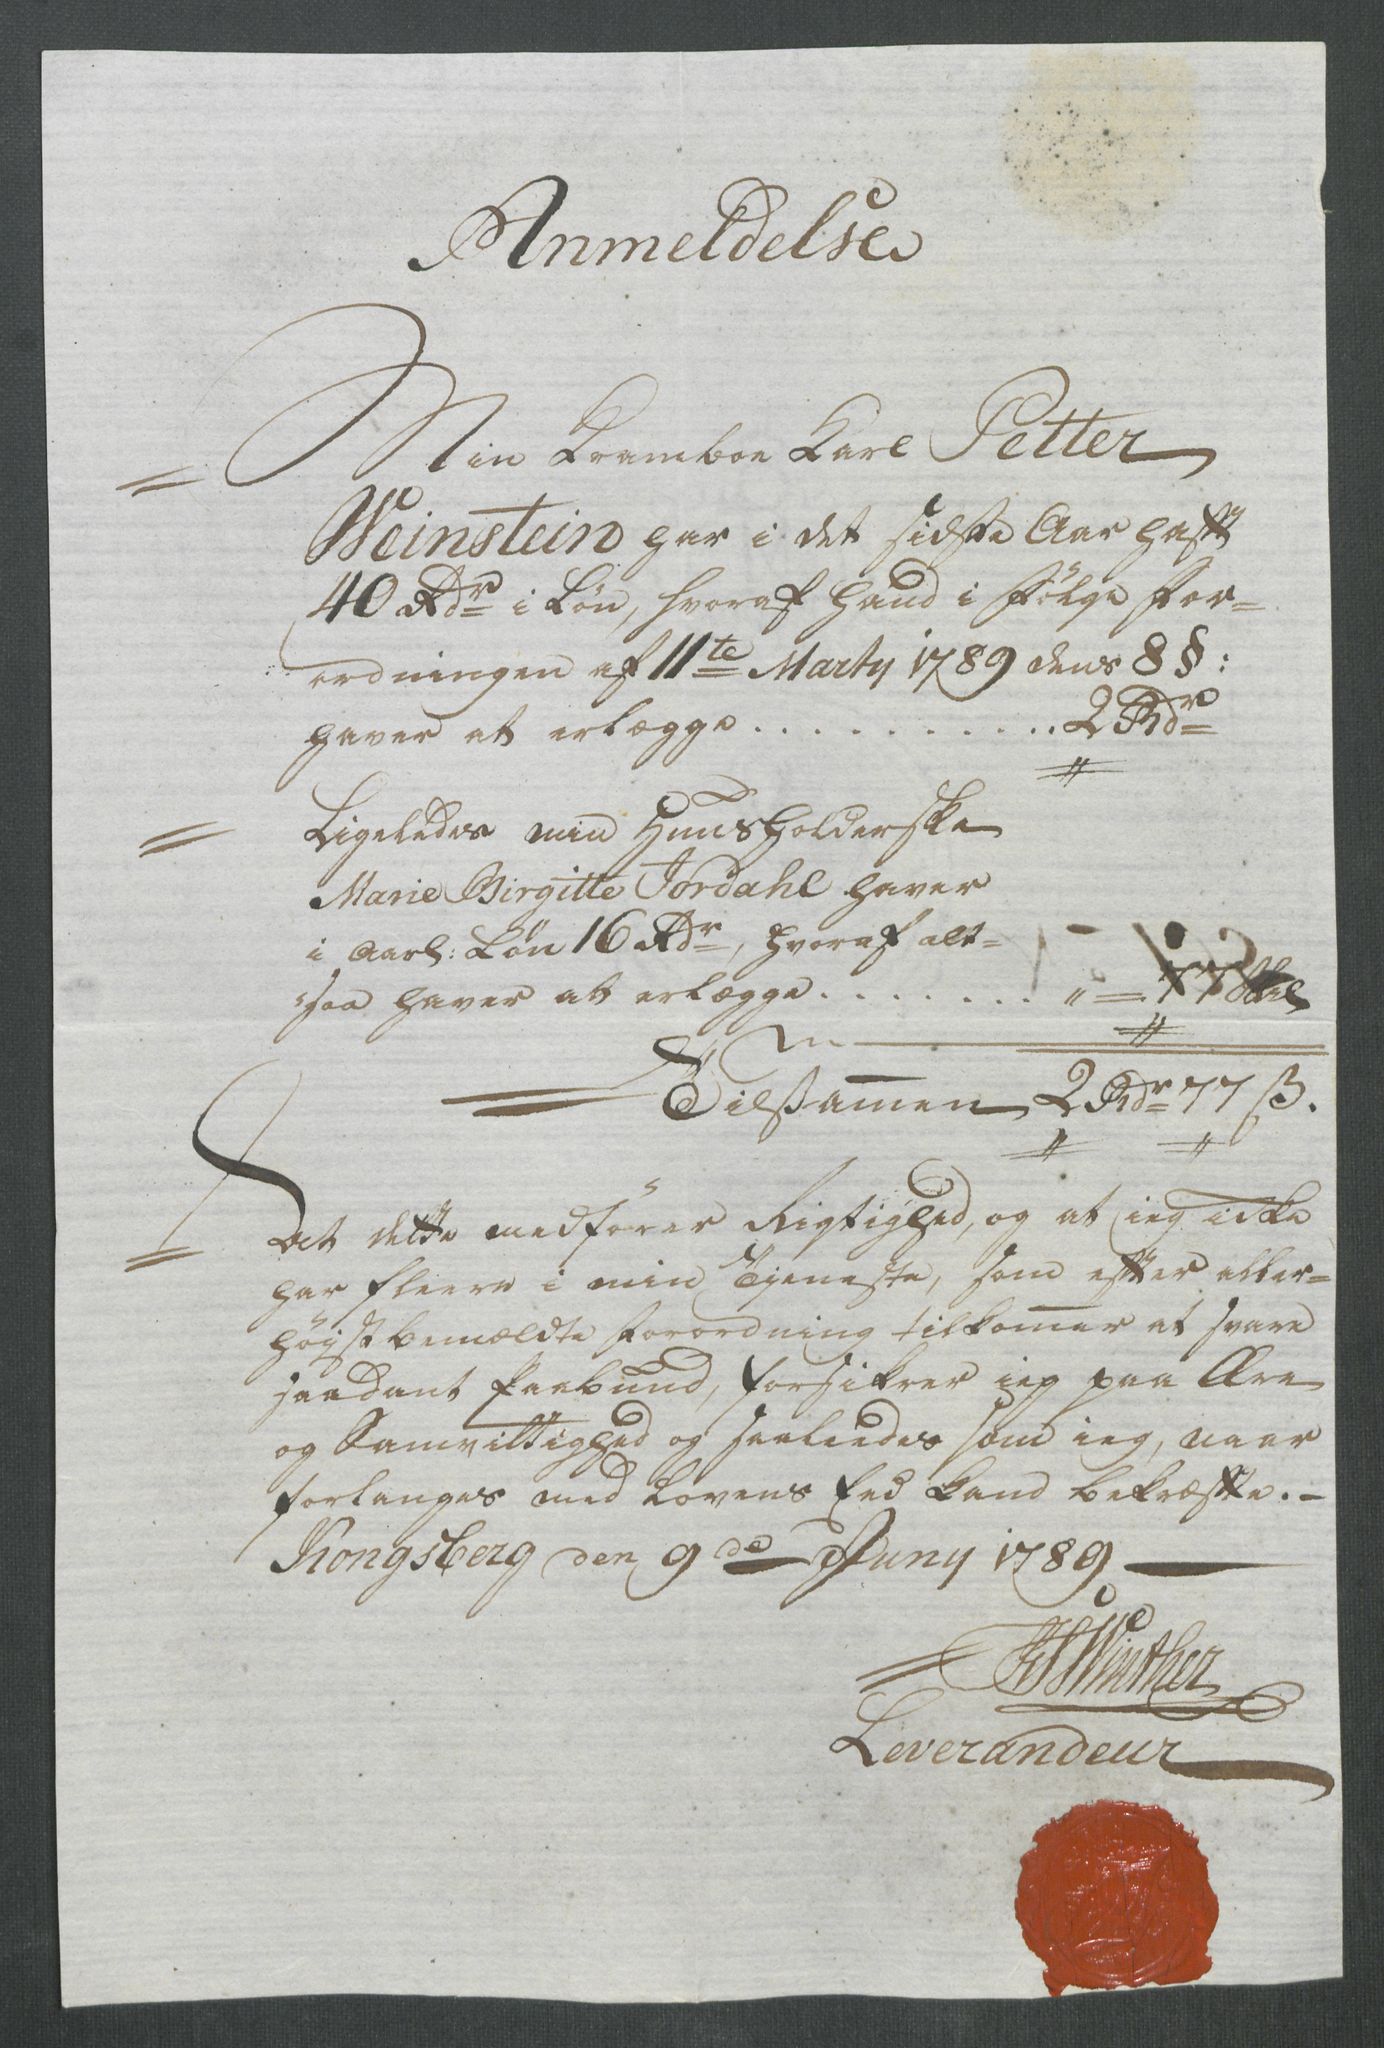 Anmeldelse
Min Kramboe Karl Petter
Weinstein har i det sidste Aar hafft
40 Rdr i Løn, hvoraf hand i Følge For-
ordningen af 11te Marty 1789 dens 8 §:
haver at erlægge . . . . . . . . . . . 2 Rdr
Ligeledes min Huusholderske
Marie Birgitte Jordahl haver
i aarl: Løn 16 Rdr, hvoraf alt-
saa haver at erlægge . . . . . . . . " = 77 Skil
Tilsamen 2 Rdr 77 ß.
At dette medfører Rigtighed, og at ieg icke
har fleere i min Tjeneste, som efter aller-
høyst bemældte Forordning tilkommer at svare
saadant Paabund, forsikrer ieg paa Ære
og Samvittighed og saaleedes som ieg, naar
forlanges med Lovens Eed kand bekræffte. -
Kongsberg den 9de Juny 1789
Winther
Leverandeur